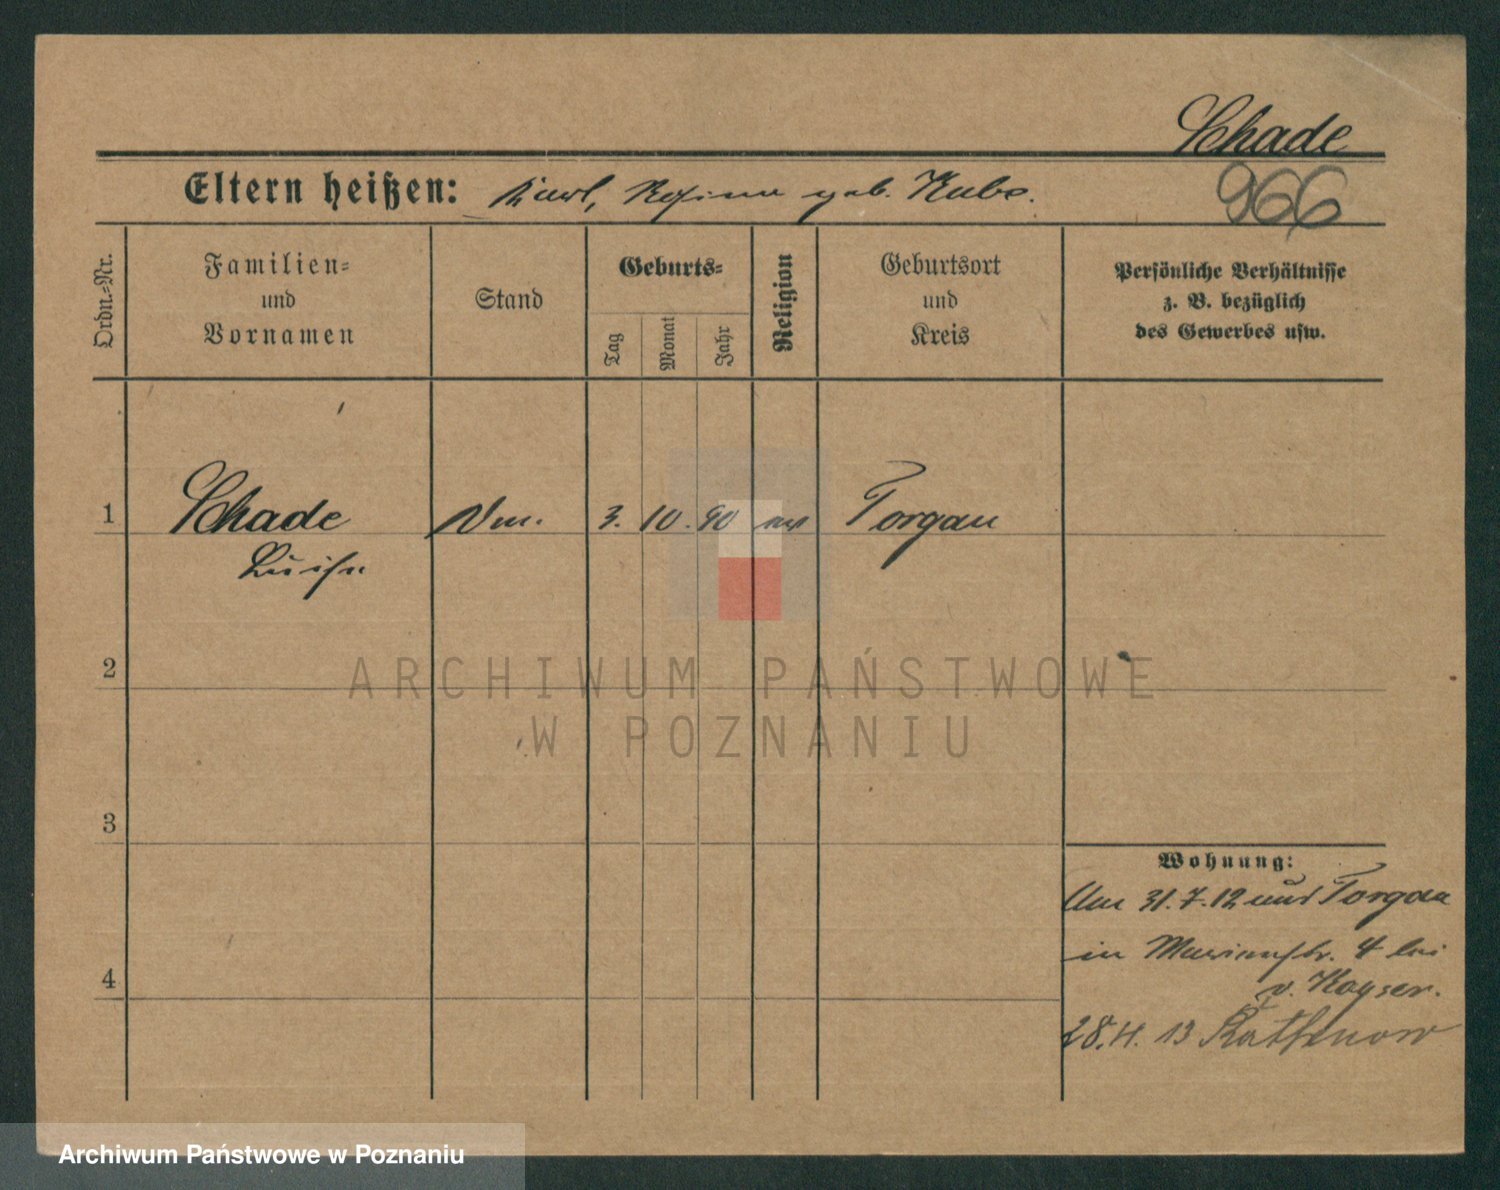 Schade
Eltern heißen: Karl, Rosina geb. Kube.
966
Ordn.-Nr.
Familien-
und
Vornamen
Stand
Geburts-
Tag
Monat
Jahr
Religion
Geburtsort
und
Kreis
Persönliche Verhältnisse
z. B. bezüglich
des Gewerbes usw.
1 Schade 3. 10. 90 ev Torgau
Luise
2
ARCHIWUM PAŃSTWOWE
W POZNANIU
3
Wohnung:
Am 31.7.12 aus Torgau
in Marienstr. 4 bei
v. Kayser.
4
28.4.13 Rathenow
Archiwum Państwowe w Poznaniu